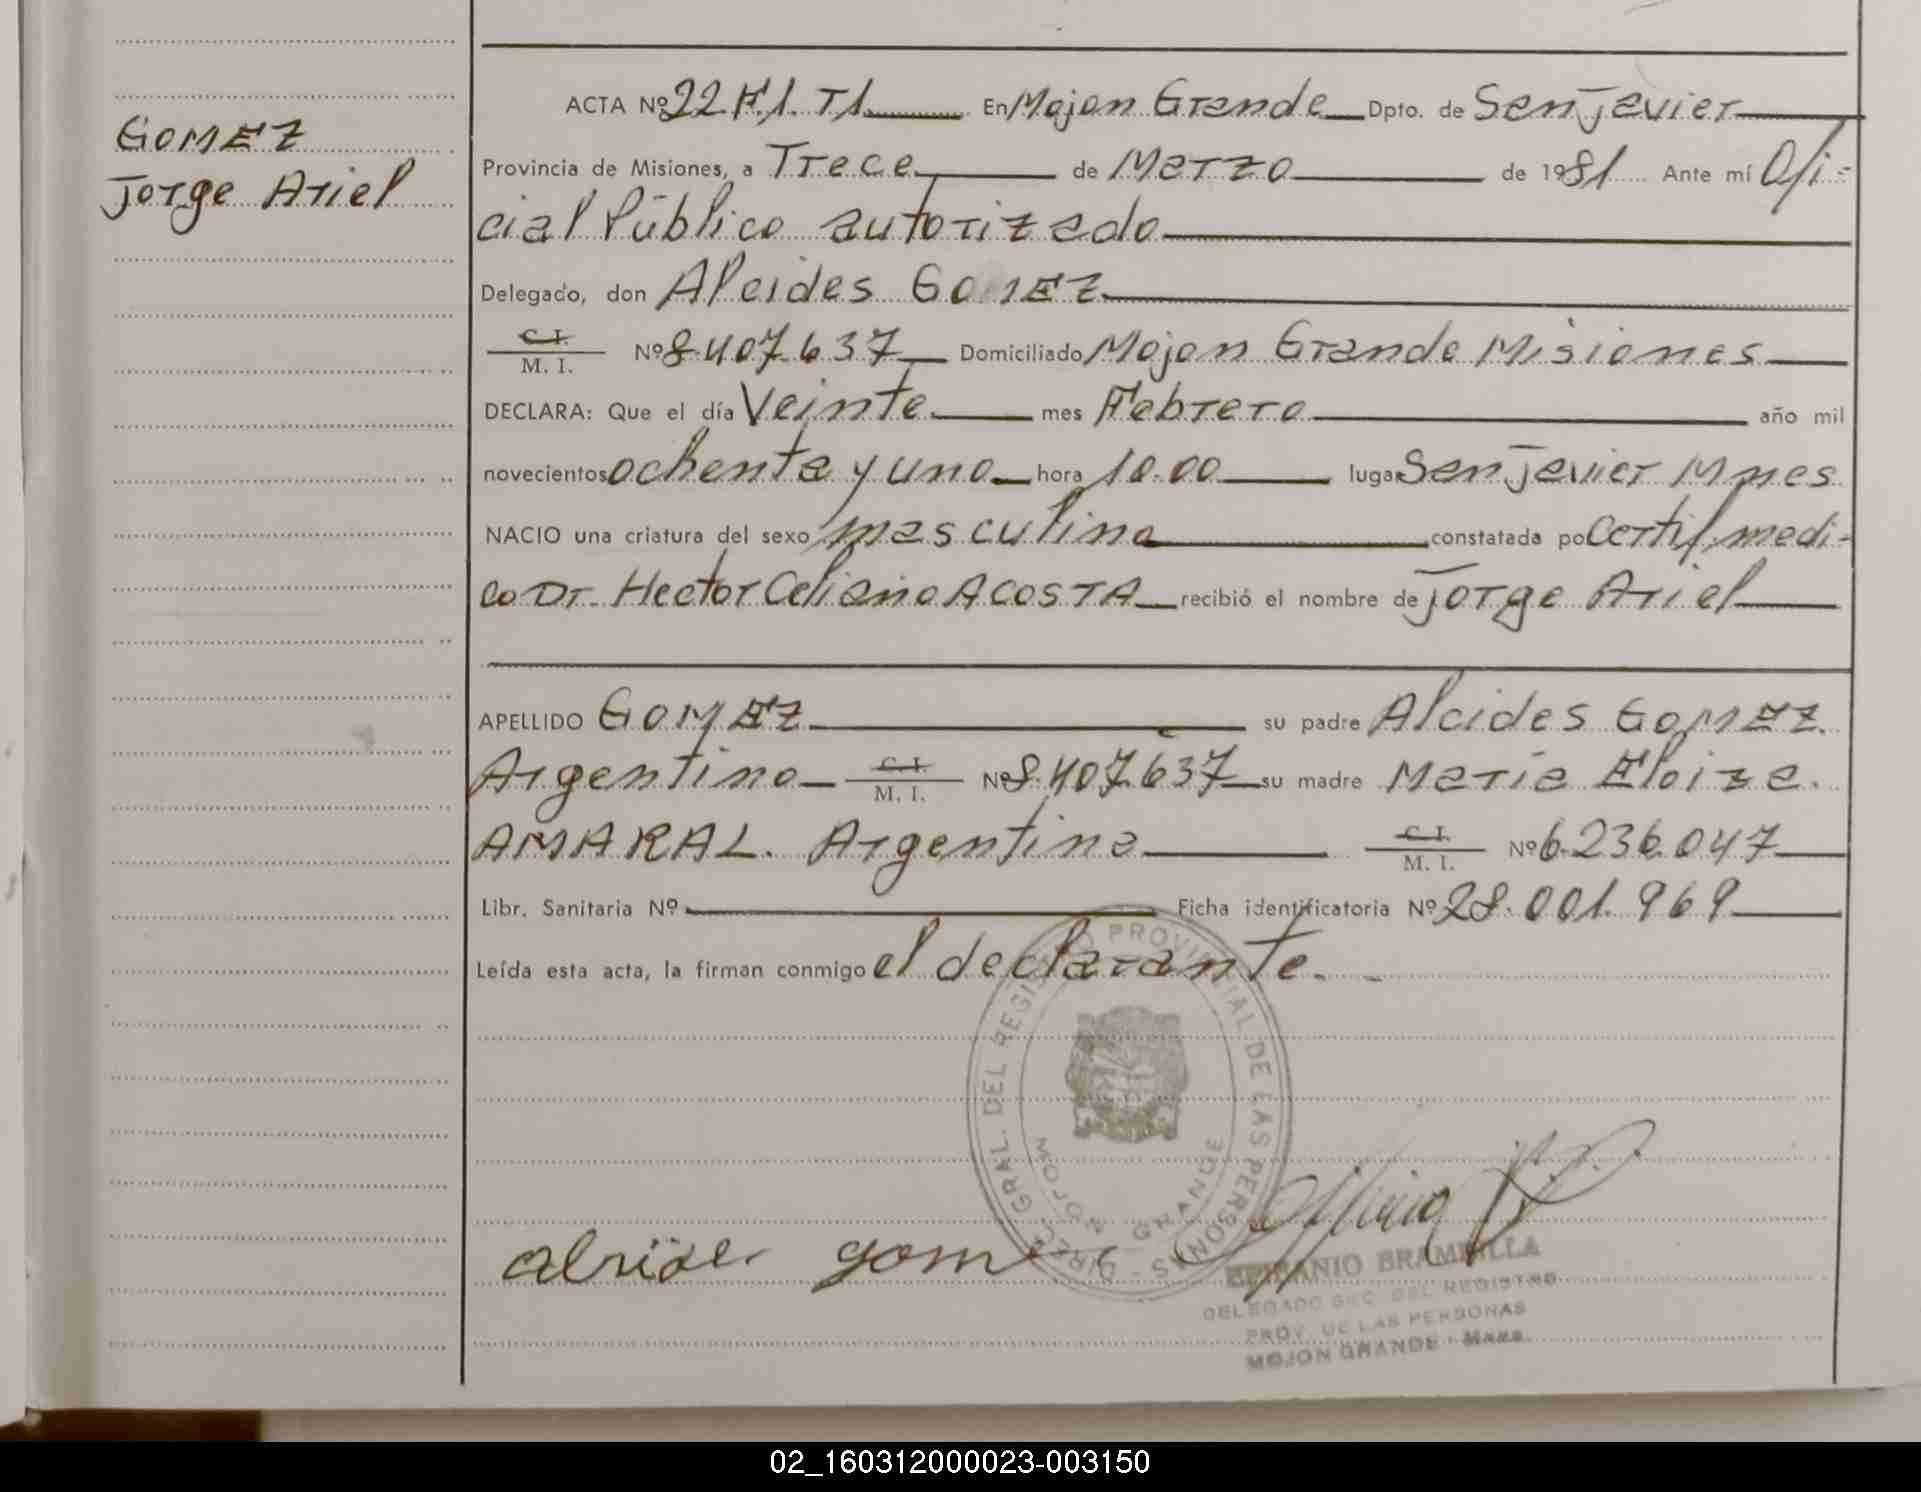 GOMEZ
Jorge Ariel
ACTA Nº 22 F1. T1. En Mojon Grande Dpto. de San Javier
Provincia de Misiones, a Trece de Marzo de 1981 Ante mí Ofi-
cial Público autorizado
Delegado, don Alcides GOMEZ
C. I.
M. I. Nº 8.407.637 Domiciliado Mojon Grande Misiones
DECLARA: Que el día Veinte mes Febrero año mil
novecientos ochenta y uno hora 10.00 lugar San Javier Mnes
NACIO una criatura del sexo masculino constatada po Certif. medi-
co Dr. Hector Celiano ACOSTA recibió el nombre de Jorge Ariel
APELLIDO GOMEZ su padre Alcides GOMEZ.
Argentino C. I. M. I. Nº 8.407.637 su madre María Eloiza.
AMARAL. Argentina C. I. M. I. Nº 6.236.047
Libr. Sanitaria Nº Ficha identificatoria Nº 28.001.969
Leída esta acta, la firman conmigo el declarante.
DIREC. GRAL. DEL REGISTRO PROVINCIAL DE LAS PERSONAS -
MOJON GRANDE
BRAMBILLA
DELEGADO SEC. DEL REGISTRO
PROV. DE LAS PERSONAS
MOJON GRANDE - Mnes.
02_160312000023-003150